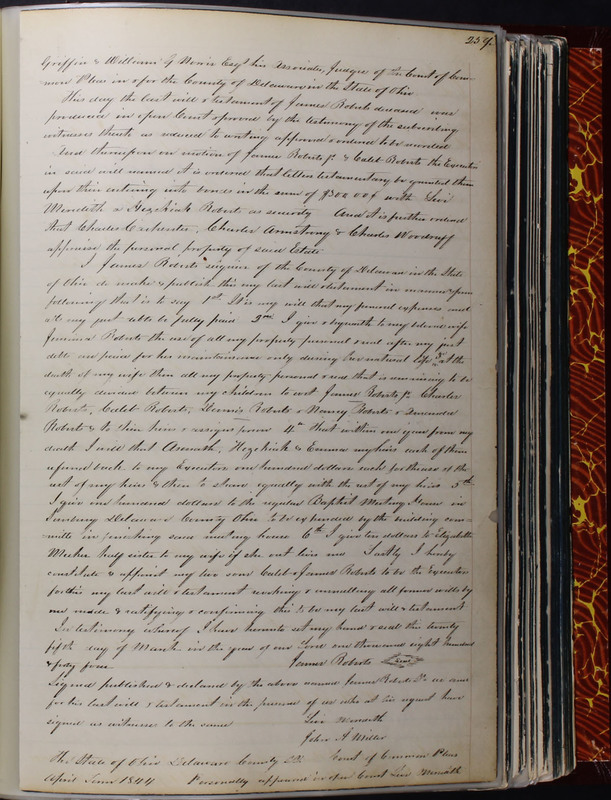 259.
Griffin & William G Norris Esqs his Associates, Judges of the Court of Com-
mon Pleas in & for the County of Delaware in the State of Ohio
This day the last will & testament of James Roberts deceased was
produced in open Court & proved by the testimony of the subscribing
witnesses thereto as reduced to writing approved & ordered to be recorded
And thereupon on motion of James Roberts Jr & Caleb Roberts the Executors
in said will named it is ordered that letters testamentary be granted them
upon their entering into bonds in the sum of $300.00 with Levi
Meredith & Hezekiah Roberts as security And it is further ordered
that Charles Armstrong & Charles Woodruff
appraise the personal property of said Estate
I James Roberts of the County of Delaware in the State
of Ohio do make & publish this my last will & testament in manner & form
following that is to say 1st. It is my will that my funeral expenses and
all my just debts be fully paid 2nd I give & bequeath to my beloved wife
Roberts the use of all my property personal & real after my just
debts are paid for her maintainance only during her natural life 3d at the
death of my wife then all my property personal & real that is remaining to be
equally devided between my children to wit James Roberts Jr Charles
Roberts, Caleb Roberts, Roberts & Nancy Roberts &
Roberts & to their heirs & assigns forever 4th that within one year from my
death I will that Asenath, Hezekiah & Emma my heirs each of them
refund back to my Executors one hundred dollars each for the use of the
rest of my heirs & then to share equally with the rest of my heirs 5th
I give one hundred dollars to the regular Baptist Meeting House in
Sunbury Delaware County Ohio to be expended by the building com-
mittee in finishing said meeting house 6th I give ten dollars to Elizabeth
half sister to my wife if she out live me Lastly I hereby
constitute & appoint my two sons Caleb & James Roberts to be the Executors
for this my last will & testament revoking & annulling all former wills by
me made & ratifying & confirming this to be my last will & testament
In testimony whereof I have hereunto set my hand & seal this twenty
fifth day of March in the year of our Lord one thousand eight hundred
& forty four James Roberts Seal
Signed published & declared by the above named James Roberts Sr as and
for his last will & testament in the presence of us who at his request have
signed as witnesses to the same Levi Meredith
John A Miller
The State of Ohio Delaware County SS. Court of Common Pleas
April Term 1844 Personally appeared in open Court Levi Meredith